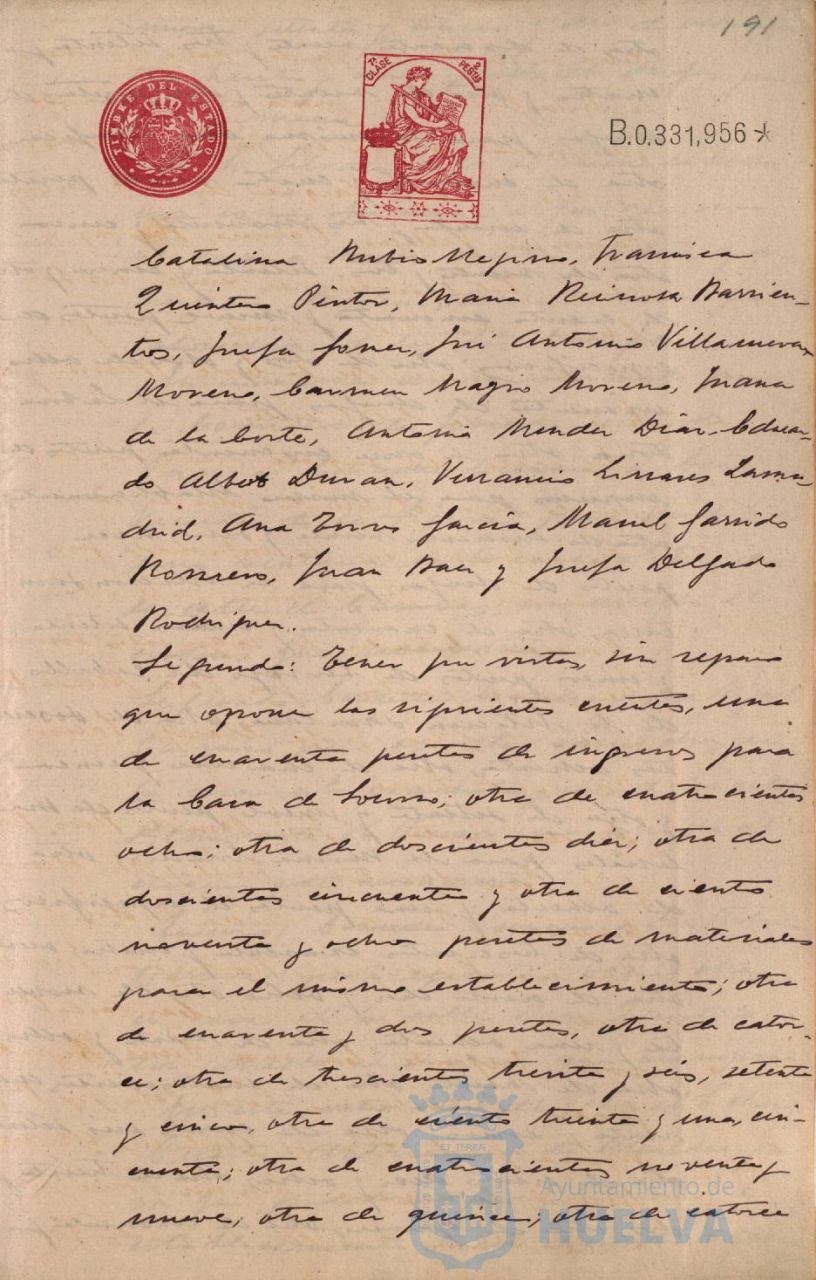 191
TIMBRE DEL ESTADO
7ª CLASE 2 PESETAS
B.0.331,956*
Catalina Rubio Negrino, Francisca
Quintero Pintor, Maria Reinosa Barrien-
tos, Josefa Gomez, José Antonio Villanueva
Moreno, Carmen Magro Moreno, Juana
de la Corte, Antonia Mendez Diaz, Eduar-
do Albot Duran, Venancio Linares Lama-
drid, Ana Torres Garcia, Manuel Garrido
Romero, Juan Baez y Josefa Delgado
Rodriguez.
Segundo: Tener por vistas, sin reparo
que oponer las siguientes cuentas, una
de cuarenta pesetas de ingresos para
la Casa de Socorro; otra de cuatrocientos
ocho; otra de doscientas diez; otra de
doscientas cincuenta y otra de ciento
noventa y ocho pesetas de materiales
para el mismo establecimiento; otra
de cuarenta y dos pesetas, otra de cator-
ce; otra de trescientas treinta y seis, setenta
y cinco, otra de ciento treinta y una, cin-
cuenta; otra de cuatrocientas noventa y
nueve; otra de quince; otra de catorce
Ayuntamiento de
HUELVA